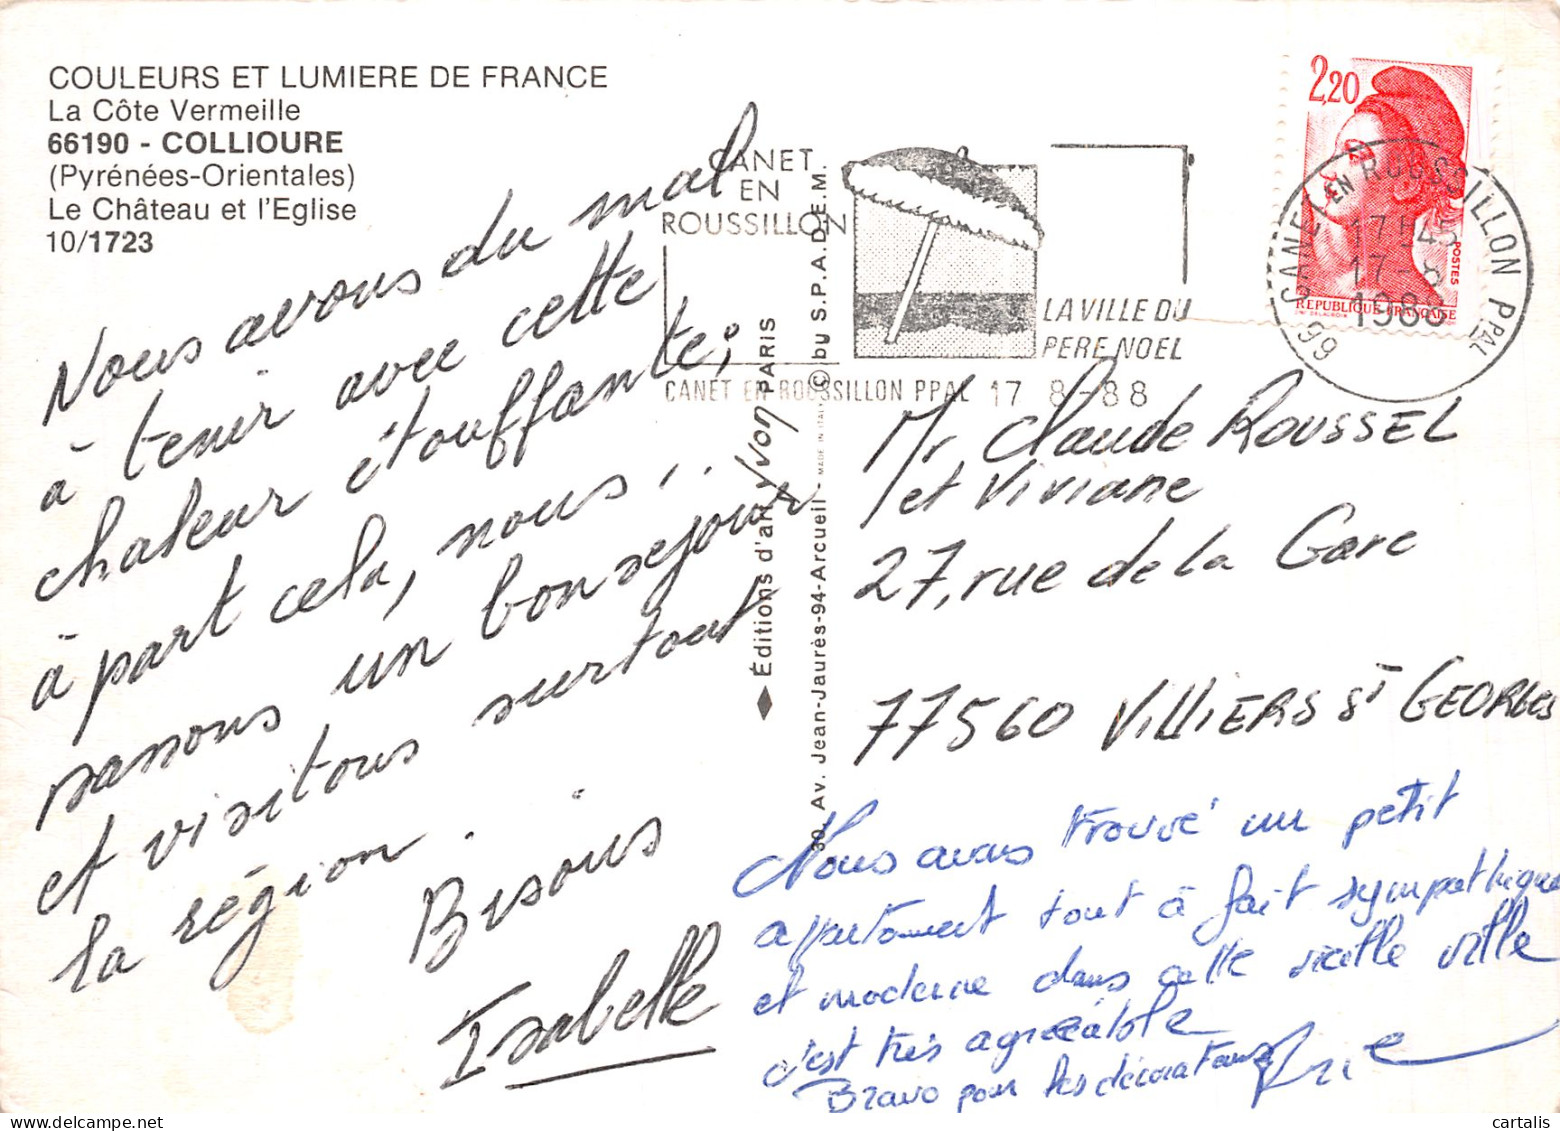 COULEURS ET LUMIERE DE FRANCE
La Côte Vermeille
66190 - COLLIOURE
(Pyrénées-Orientales)
Le Château et l'Eglise
10/1723
Nous avons du mal
à tenir avec cette
chaleur étouffante;
à part cela, nous..
passons un bon séjour
et visitons surtout
la région.
Bisous
Isabelle
◆ Éditions d'art yvon PARIS
30, Av. Jean-Jaurès-94-Arcueil - MADE IN ITALY © by S.P.A.D.E.M.
CANET
EN
ROUSSILLON
LA VILLE DU
PERE NOEL
CANET EN ROUSSILLON PPAL 17 8-88
2,20
POSTES
REPUBLIQUE FRANÇAISE
66 CANET EN ROUSSILLON PPAL
17H45
17-8
1988
Mr Claude ROUSSEL
et Viviane
27, rue de la Gare
77560 VILLIERS St GEORGES
Nous avons trouvé un petit
appartement tout à fait sympathique
et moderne dans cette vieille ville
c'est très agréable
Bravo pour les décorateurs
cartalis